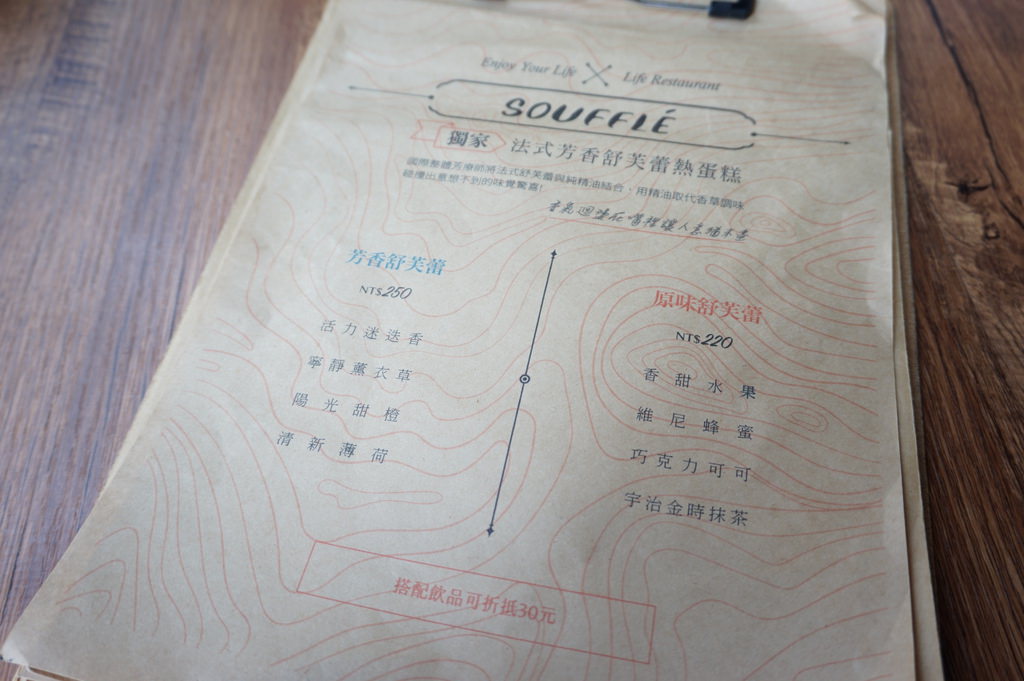 Enjoy Your Life Life Restaurant
SOUFFLÉ
獨家 法式芳香舒芙蕾熱蛋糕
國際整體芳療師將法式舒芙蕾與純精油結合，用精油取代香草調味
碰撞出意想不到的味覺驚喜!
芳香舒芙蕾
NT$250
活力迷迭香
寧靜薰衣草
陽光甜橙
清新薄荷
原味舒芙蕾
NT$220
香甜水果
維尼蜂蜜
巧克力可可
宇治金時抹茶
搭配飲品可折抵30元